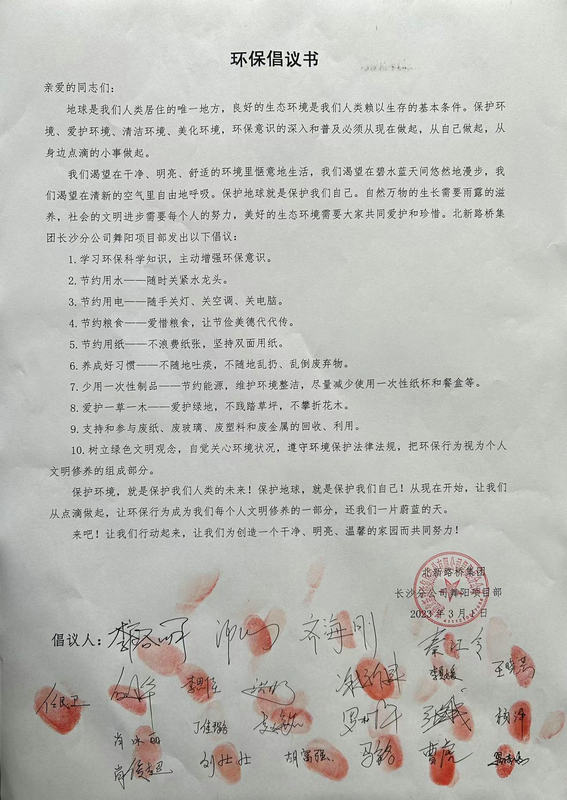 环保倡议书
亲爱的同志们：
地球是我们人类居住的唯一地方，良好的生态环境是我们人类赖以生存的基本条件。保护环
境、爱护环境、清洁环境、美化环境，环保意识的深入和普及必须从现在做起，从自己做起，从
身边点滴的小事做起。
我们渴望在干净、明亮、舒适的环境里惬意地生活，我们渴望在碧水蓝天间悠然地漫步，我
们渴望在清新的空气里自由地呼吸。保护地球就是保护我们自己。自然万物的生长需要雨露的滋
养，社会的文明进步需要每个人的努力，美好的生态环境需要大家共同爱护和珍惜。北新路桥集
团长沙分公司舞阳项目部发出以下倡议：
1.学习环保科学知识，主动增强环保意识。
2.节约用水——随时关紧水龙头。
3.节约用电——随手关灯、关空调、关电脑。
4.节约粮食——爱惜粮食，让节俭美德代代传。
5.节约用纸——不浪费纸张，坚持双面用纸。
6.养成好习惯——不随地吐痰，不随地乱扔、乱倒废弃物。
7.少用一次性制品——节约能源，维护环境整洁，尽量减少使用一次性纸杯和餐盒等。
8.爱护一草一木——爱护绿地，不践踏草坪，不攀折花木。
9.支持和参与废纸、废玻璃、废塑料和废金属的回收、利用。
10.树立绿色文明观念，自觉关心环境状况，遵守环境保护法律法规，把环保行为视为个人
文明修养的组成部分。
保护环境，就是保护我们人类的未来！保护地球，就是保护我们自己！从现在开始，让我们
从点滴做起，让环保行为成为我们每个人文明修养的一部分，还我们一片蔚蓝的天。
来吧！让我们行动起来，让我们为创造一个干净、明亮、温馨的家园而共同努力！
北新路桥集团
长沙分公司舞阳项目部
2023 年 3 月 1 日
倡议人： 齐海刚
任民卫
肖冰丽 丁佳璐
肖俊超 刘壮壮 胡富强 曹虎